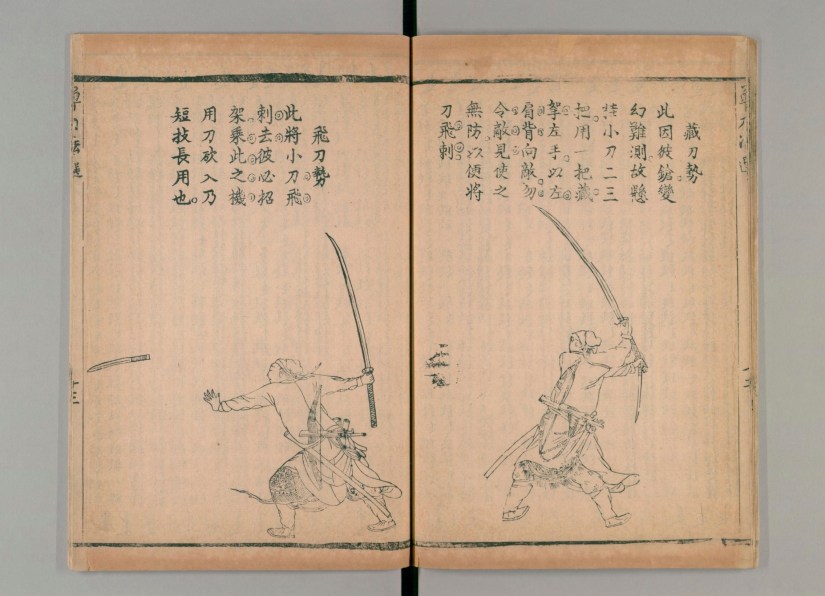 藏刀勢
此因彼鎗變
幻難測故懸
挂小刀二三
把用一把藏
挐左手以左
肩背向敵勿
令敵見使之
無防以便將
刀飛刺
飛刀勢
此將小刀飛
刺去彼必招
架乘此之機
用刀砍入乃
短技長用也
單刀法選
十三